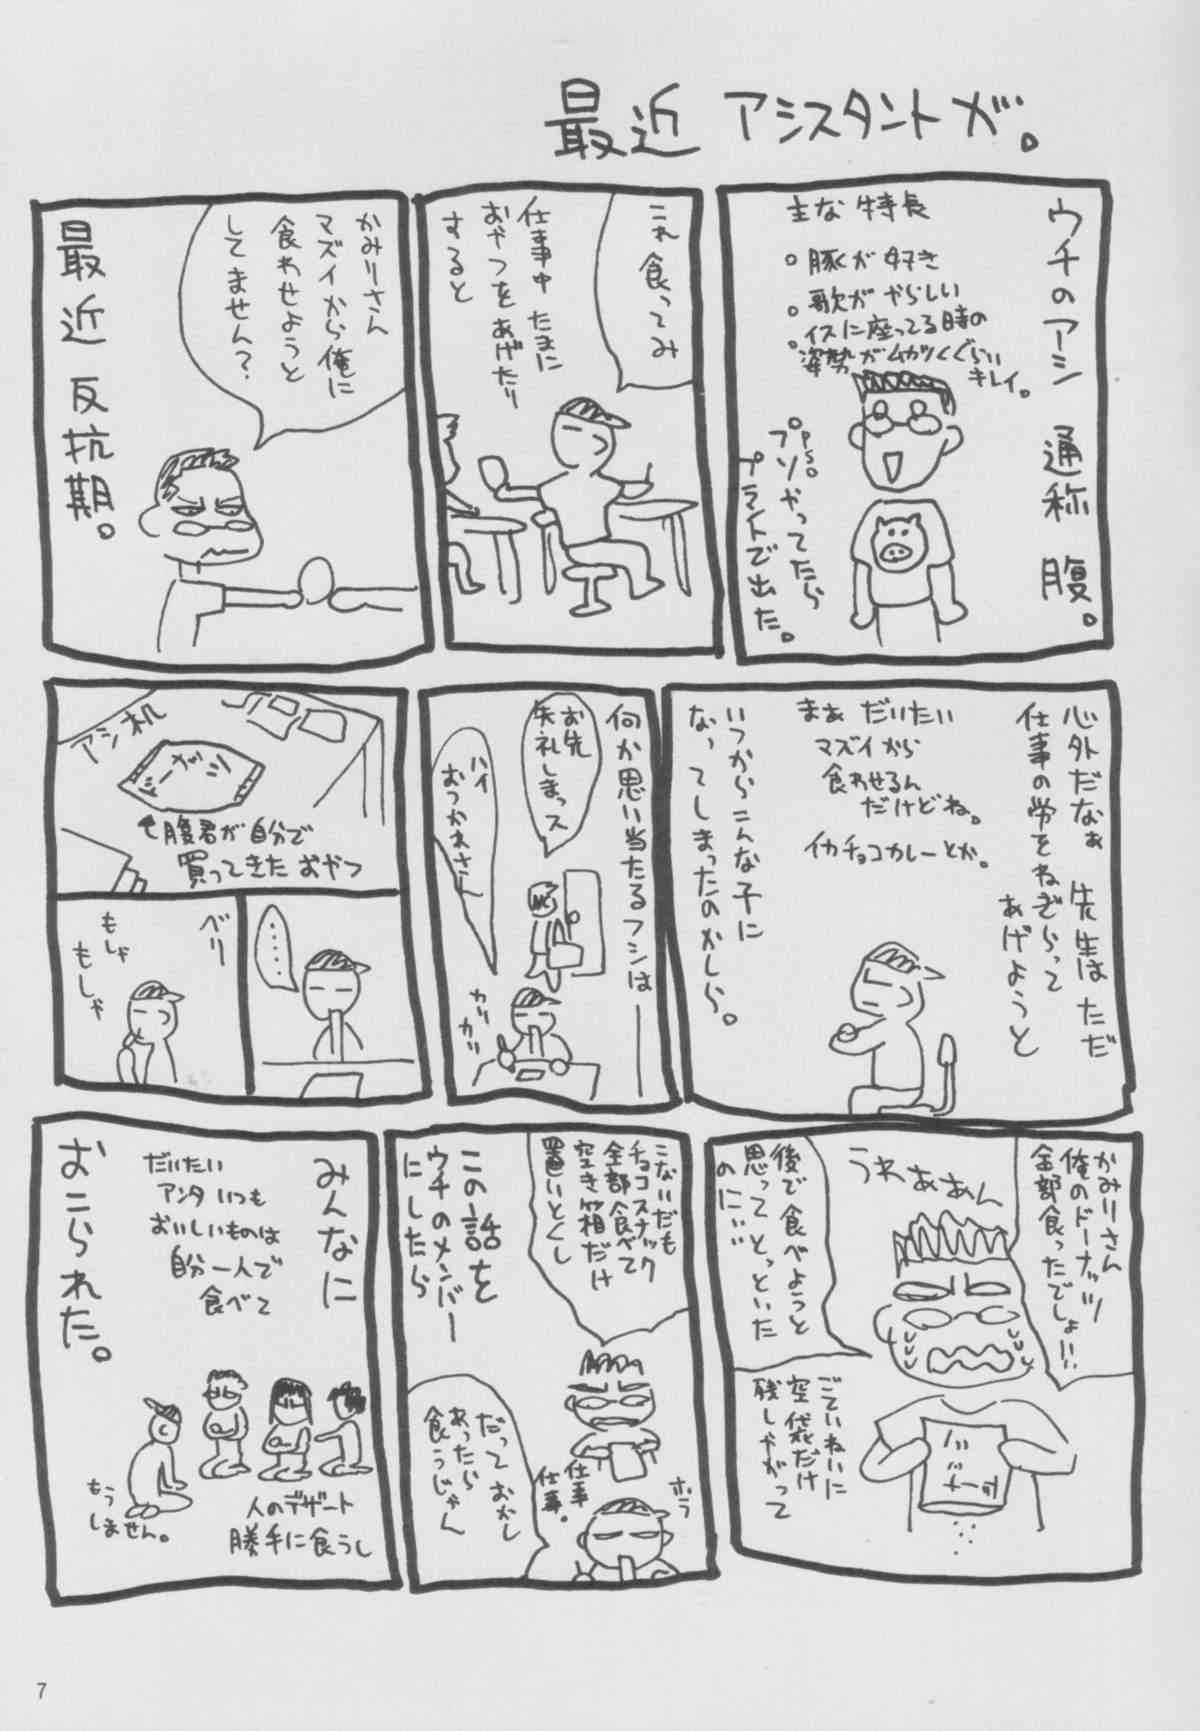 最近 アシスタントが。
ウチのアシ 通称 腹。
主な特長
。豚が好き
。歌がやらしい
。イスに座ってる時の
姿勢がムカツくぐらい
キレイ。
プソやってたら
PSO
プライトで出た。
これ食ってみ
仕事中たまに
おやつをあげたり
すると
かみりさん
マズイから俺に
食わせようと
してません?
最近 反抗期。
心外だなぁ 先生はただ
仕事の労をねぎらって
あげようと
まぁ だいたい
マズイから
食わせるん
だけどね。
イカチョコカレーとか。
いつからこんな子に
なってしまったのかしら。
何か思い当たるフシは―
お先
失礼しまっス
ハイ
おつかれさん
カリ
カリ
アシ机
←腹君が自分で
買ってきたおやつ
・・・・・
ベリ
もしゃ
もしゃ
かみりさん
俺のドーナッツ
全部食ったでしょ!!
うわぁあぁん
後で食べようと
思ってとっといた
のにぃ
ごていねいに
空袋だけ
残しやがって
こないだも
チョコスナック
全部食べて
空き箱だけ
置いとくし
この話を
ウチのメンバー
にしたら
ホラ
仕事
仕事。
だって おかし
あったら
食うじゃん
みんなに
おこられた。
だいたい
アンタいつも
おいしいものは
自分一人で
食べて
人のデザート
勝手に食うし
もう
しません。
7